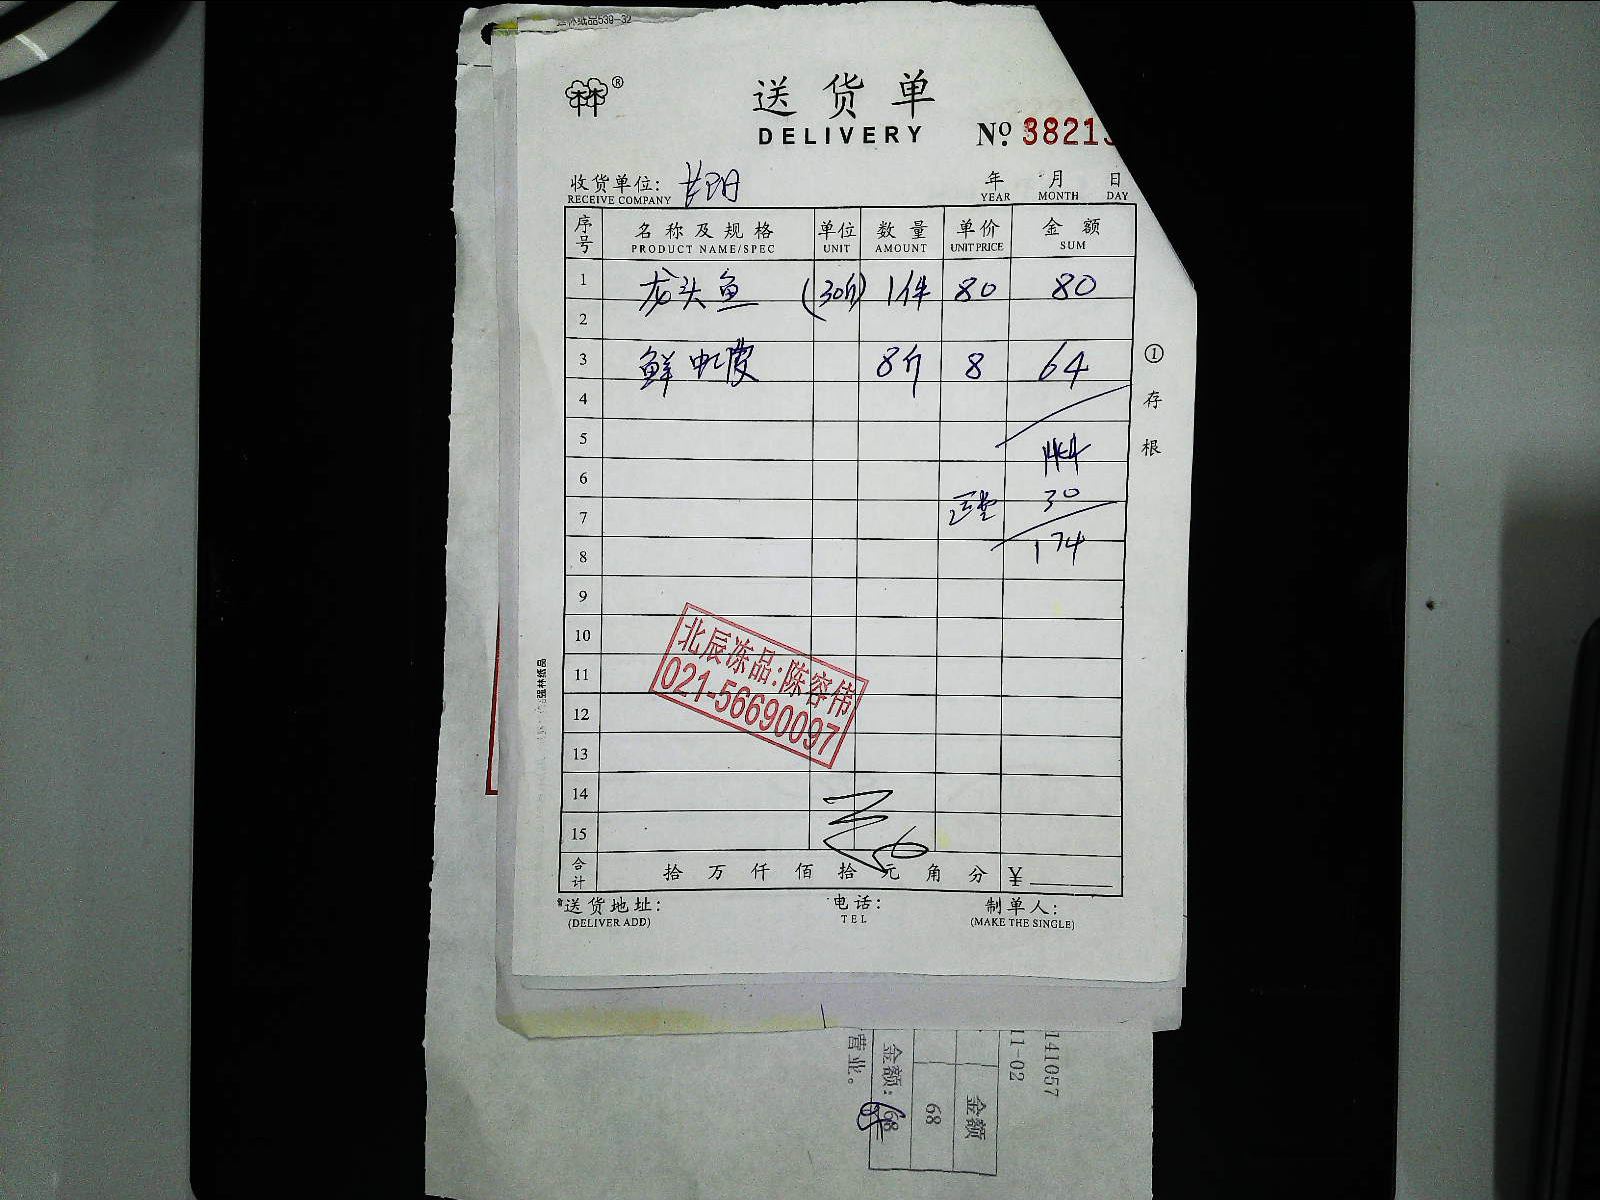 强林纸品539-32
林林®
送货单
DELIVERY
Nº. 38213
收货单位:
RECEIVE COMPANY
年 月 日
YEAR MONTH DAY
序号 名称及规格 单位 数量 单价 金额
PRODUCT NAME/SPEC UNIT AMOUNT UNIT PRICE SUM
1 龙头鱼 (30斤) 1件 80 80
2
3 鲜虾皮 8斤 8 64
4
5 144
6
7 30
8 174
9
10
11
12
13
14
15
北辰冻品:陈容伟
021-56690097
合计 拾 万 仟 佰 拾 元 角 分 ¥
送货地址: 电话: 制单人:
(DELIVER ADD) TEL (MAKE THE SINGLE)
①存根
强林纸品
141057
11-02
金额
68
金额: 68
营业。